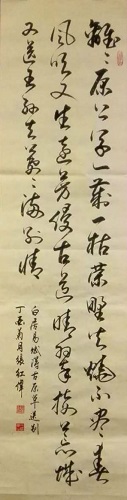 離〻原上草一歲一枯榮野火燒不盡春
風吹又生遠芳侵古道晴翠接荒城
又送王孫去萋〻滿別情
白居易賦得古原草送別
丁酉菊月張紅偉